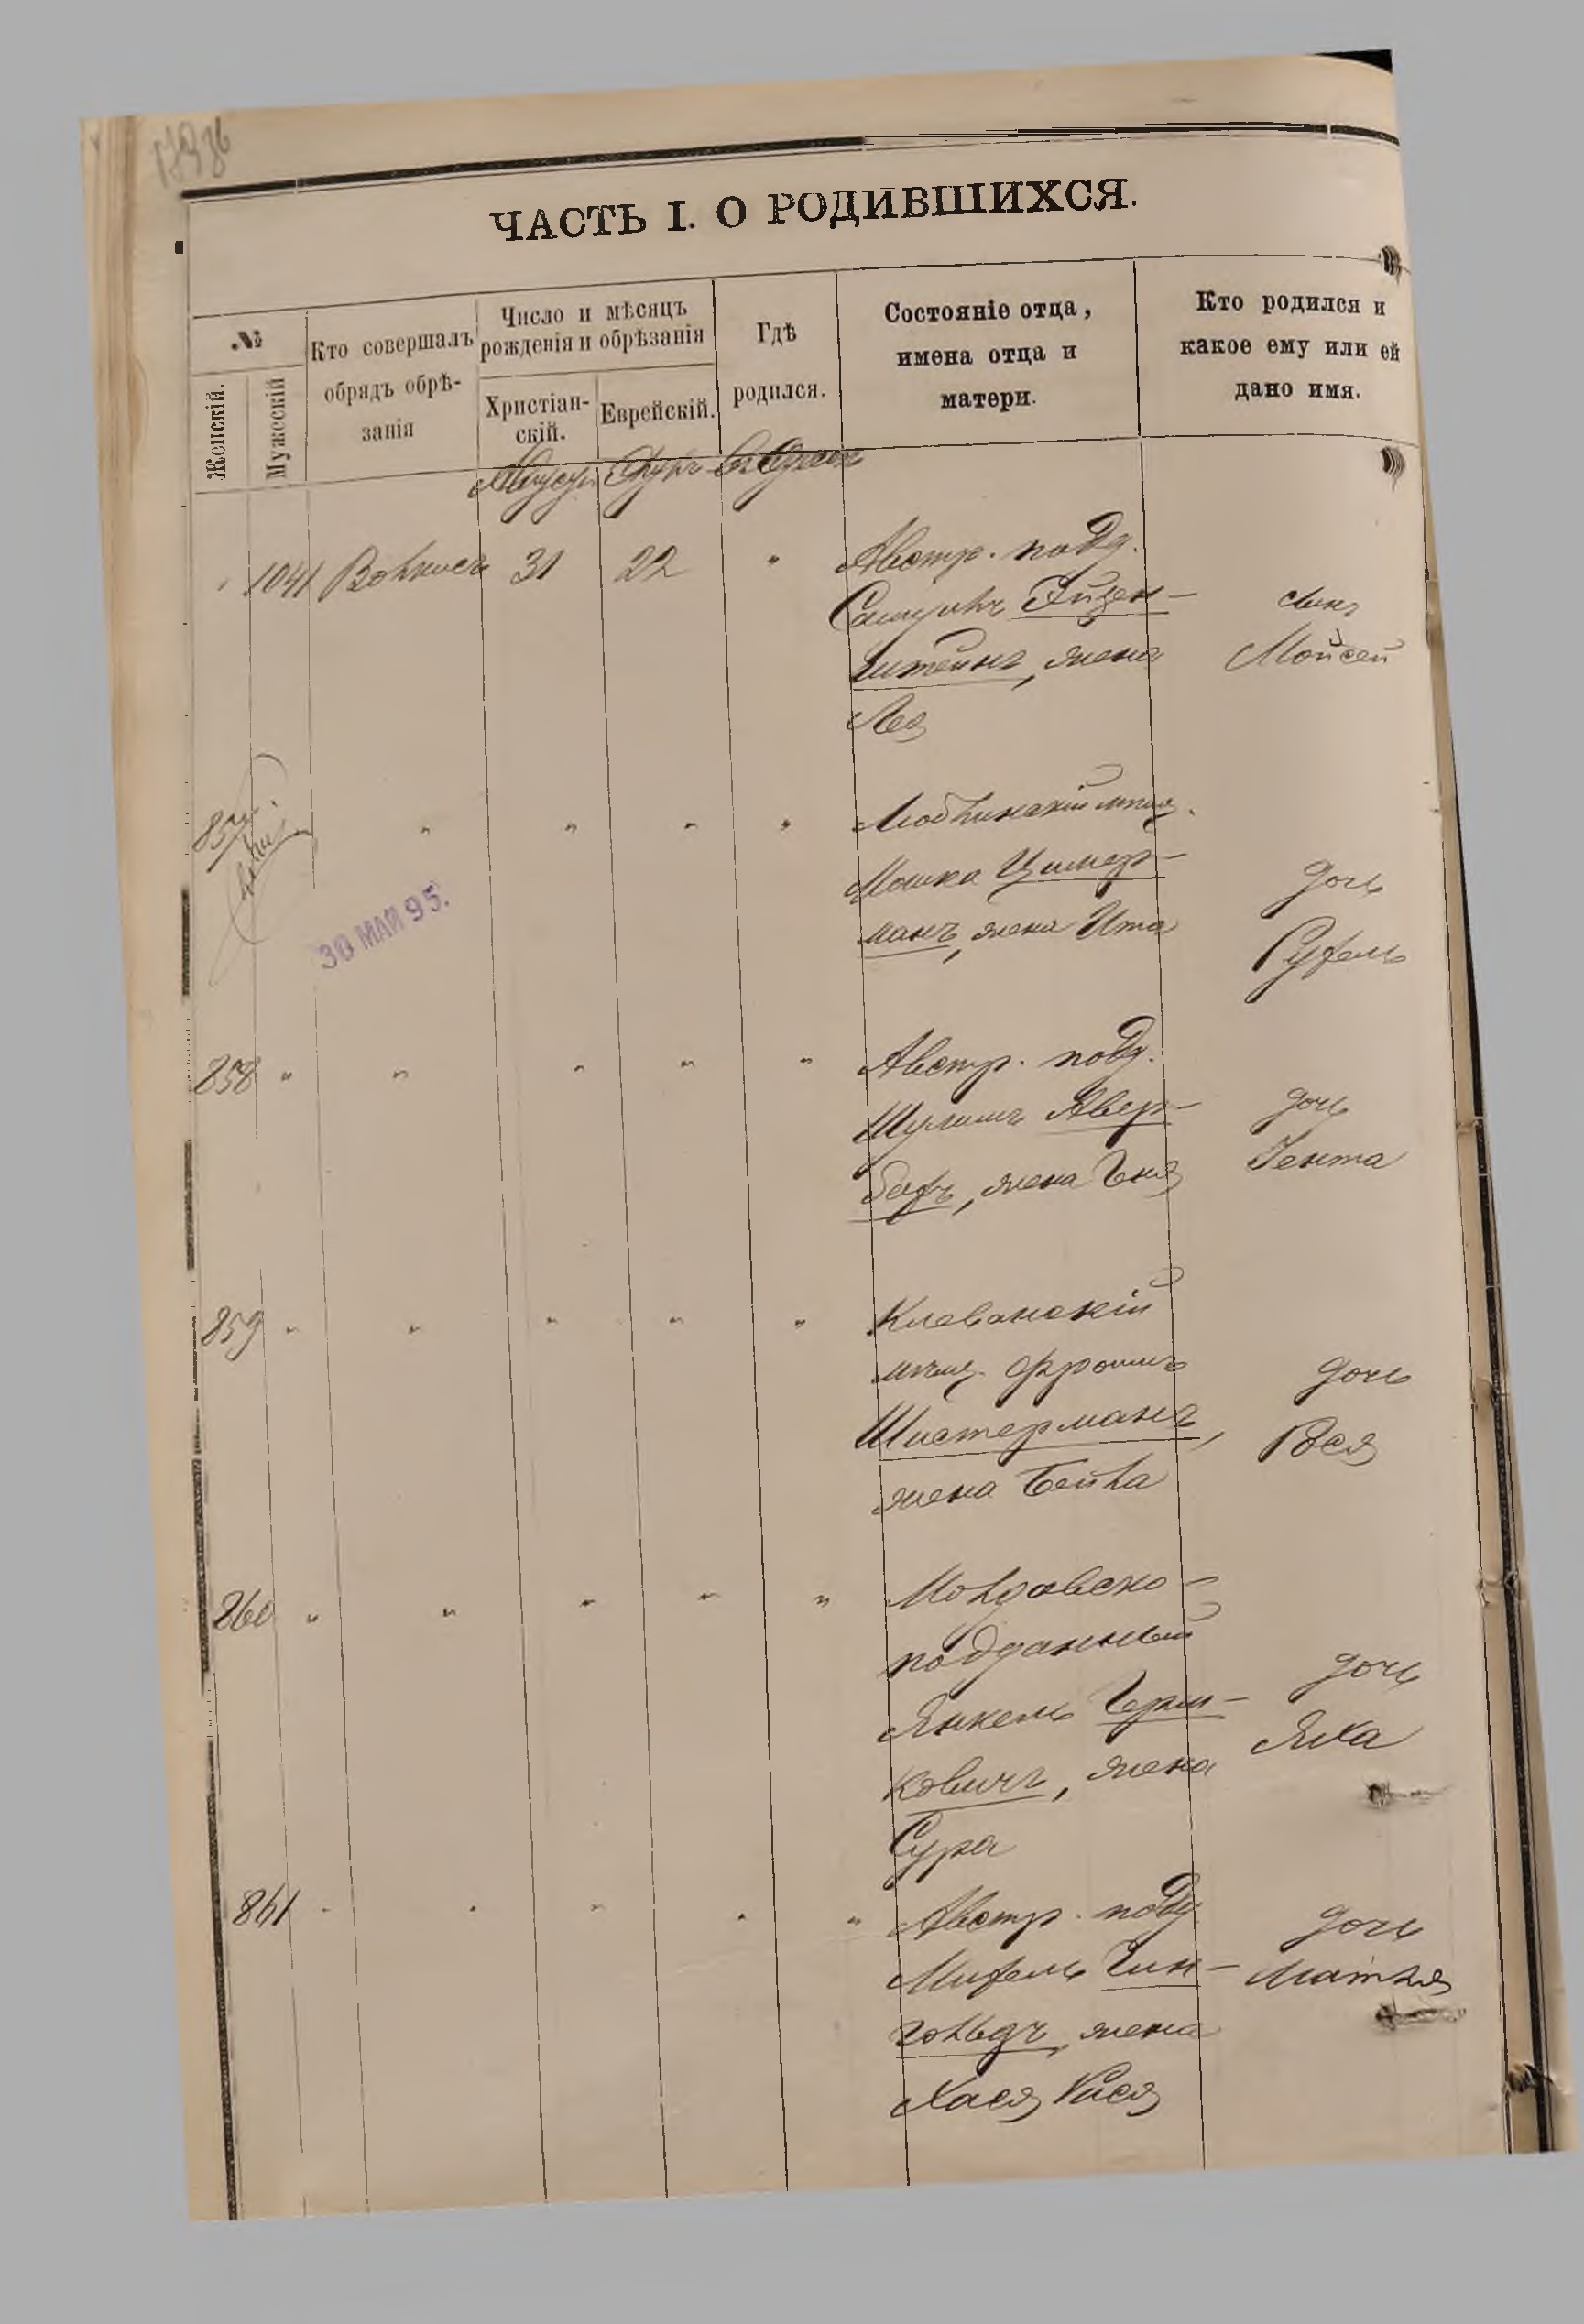 ЧАСТЬ I. О РОДИВШИХСЯ.
№
Женскій.
Мужескій
Кто совершалъ
обрядъ обрѣ-
занія
Число и мѣсяцъ
рожденія и обрѣзанія
Христіан-
скій.
Еврейскій.
Гдѣ
родился.
Состояніе отца,
имена отца и
матери.
Кто родился и
какое ему или ей
дано имя.
1041 31 22 " Австр. подд.
Самуилъ Эйзен-
штейнъ, жена
Лея
сынъ
Мойсей
857 " " " "
Мошка Цимер-
манъ, жена Ита
дочь
Рухель
30 МАЙ 95.
858 " " " " " Австр. подд.
Шулимъ Авер-
бухъ, жена Геня
дочь
Гента
859 " " " " " Клеванскій
мѣщ. Фроимъ
Шистерманъ,
жена Бейла
дочь
Рося
860 " " " " " Молдавско-
подданный
Янкель Герш-
ковичъ, жена
Сура
дочь
Хая
861 " " " " " Австр. подд.
Михель Гин-
гольдъ, жена
Хася Рися
дочь
Матля